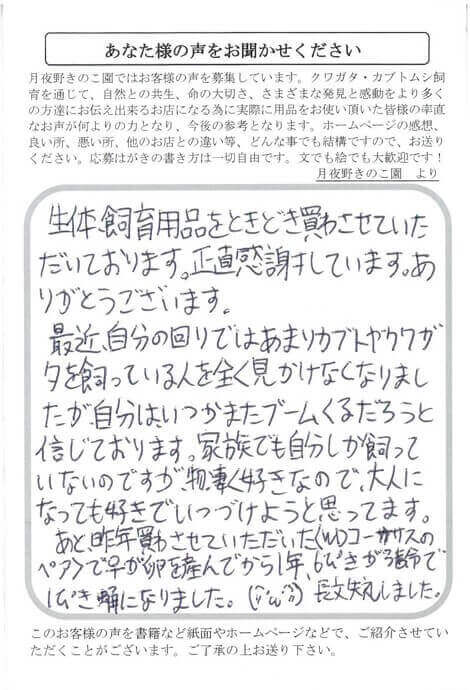 あなた様の声をお聞かせください
月夜野きのこ園ではお客様の声を募集しています。クワガタ・カブトムシ飼
育を通じて、自然との共生、命の大切さ、さまざまな発見と感動をより多く
の方達にお伝え出来るお店になる為に実際に用品をお使い頂いた皆様の率直
なお声が何よりの力となり、今後の参考となります。ホームページの感想、
良い所、悪い所、他のお店との違い等、どんな事でも結構ですので、お送り
ください。応募はがきの書き方は一切自由です。文でも絵でも大歓迎です！
月夜野きのこ園　より
生体、飼育用品をときどき買わさせていた
だいております。正直感謝しています。あ
りがとうございます。
最近、自分の回りではあまりカブトヤクワガ
タを飼っている人を全く見かけなくなりまし
たが、自分は、いつかまたブームくるだろうと
信じております。家族でも自分しか飼って
いないのですが、物凄く好きなので、大人に
なっても好きでいつづけようと思ってます。
あと、昨年買わさせていただいた(WD)コーカサスの
ペアで♀が卵を産んでから1年、6ぴきが3齢で
1ぴき蛹になりました。 長文失礼しました。
このお客様の声を書籍など紙面やホームページなどで、ご紹介させてい
ただくことがございます。ご了承の上お送り下さい。